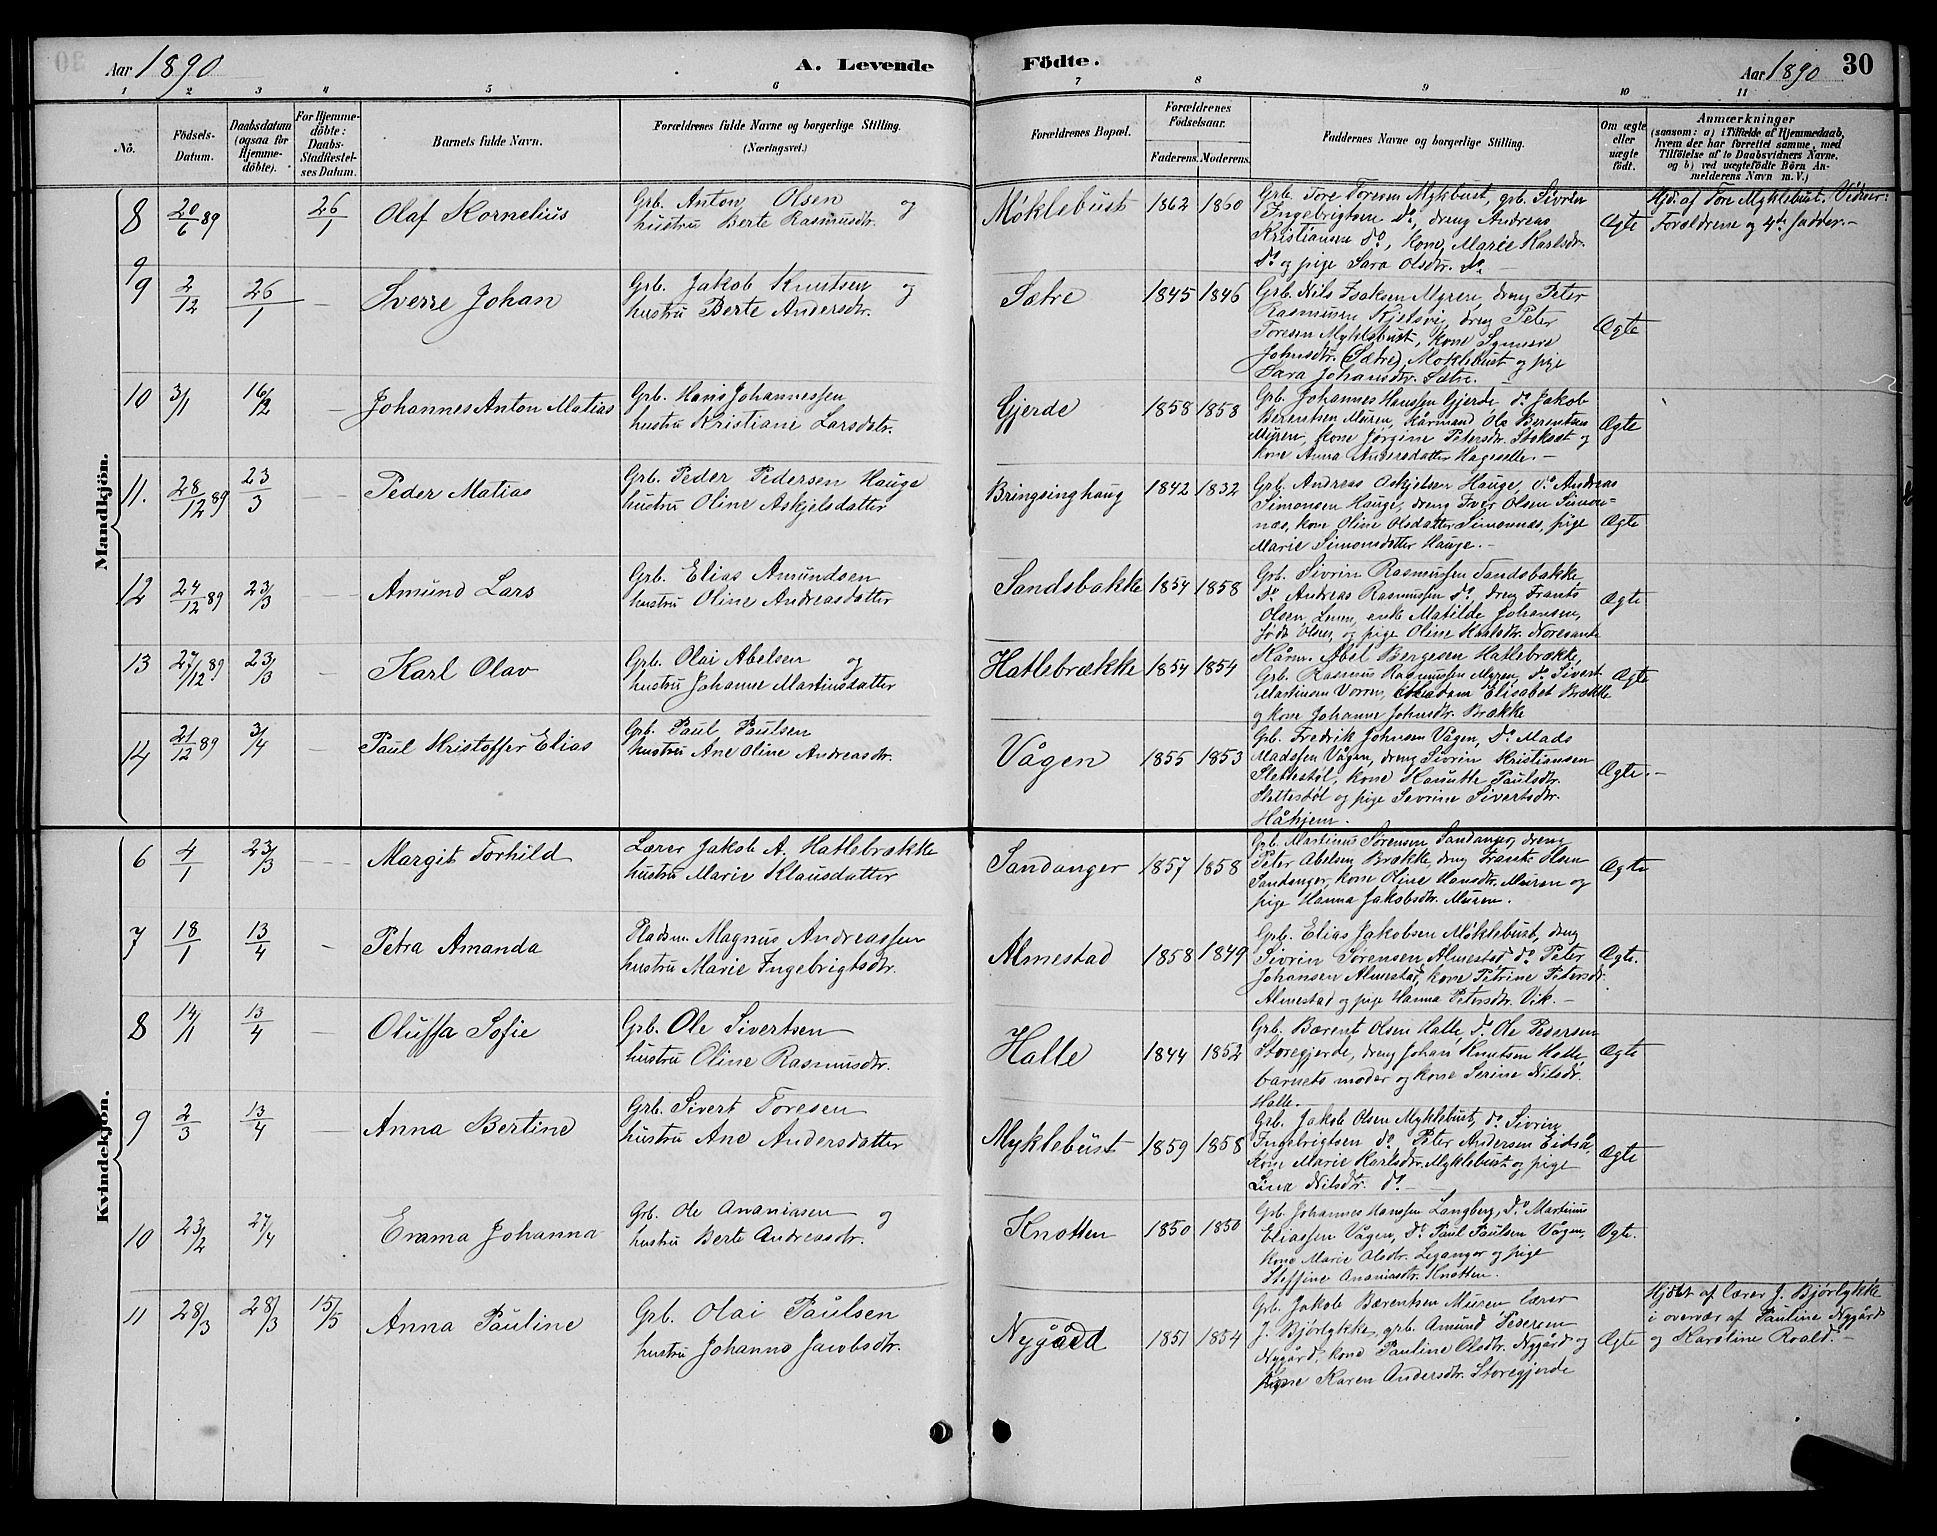 30
Aar 1890
A. Levende
Födte.
Aar 1890
30
1 2 3 4 5 6 7 8 9 10 11
No.
Födsels-
Datum.
Daabsdatum
(ogsaa for
Hjemme-
döbte).
For Hjemme-
döbte:
Daabs-
Stadfæstel-
ses Datum.
Barnets fulde Navn.
Forældrenes fulde Navne og borgerlige Stilling.
(Næringsvei.)
Forældrenes Bopæl.
Forældrenes
Födselsaar.
Faderens. Moderens.
Faddernes Navne og borgerlige Stilling.
Om ægte
eller
uægte
födt.
Anmærkninger
(saasom: a) i Tilfælde af Hjemmedaab,
hvem der har forrettet samme, med
Tilföielse af to Daabsvidners Navne,
og b) ved uægtefödte Börn An-
melderens Navn m. V.)
Mandkjön.
8
20/6 89
26/1
Olaf Kornelius
Grb. Anton Olsen og
hustru Berte Rasmusdtr.
Møklebust
1862 1860
Grb. Tore Toresen Myklebust, grb. Sivrin
Ingebrigtsen do, dreng Andreas
Kristiansen do, kone Marie Karlsdr.
do og pige Sara Olsdtr. do. —
Ægte
Hjd. af Tore Myklebust. Vidner:
Forældrene og 4de fadder.—
9
9
2/12
26/1
—
Sverre Johan
Grb. Jakob Knutsen og
hustru Berte Andersdtr.
Sætre
1845 1846
Grb. Nils Isaksen Myren, dreng Peter
Rasmussen Kjelsvi, dreng Peter
Toresen Myklebust, kone Synnøve
Johnsdtr. (Sætre) Moklebust og pige
Sara Johansdtr. Sætre.
Ægte
10
3/1
16/2
—
Johannes Anton Matias
Grb. Hans Johannessen
hustru Kristiane Larsdatr.
Gjerde
1858 1858
Grb. Johannes Hanssen Gjerde do Jakob
Berentsen Muren, Kårmand Ole Berentsen
Muren, kone Jørgine Petersdtr. Stokset og
kone Anna Andersdatter Hageselle. —
Ægte
11.
28/12 89
23/3
—
Peder Matias
Grb. Peder Pedersen Hauge
hustru Oline Askjelsdatter
Bringsinghaug
1842 1832
Grb. Andreas Askjelsen Hauge, do Andreas
Simonsen Hauge, dreng Iver Olsen Simon-
næs, kone Oline Olsdatter Simonnæs, pige
Marie Simonsdatter Hauge. —
Ægte
12
24/12 89
23/3
—
Amund Lars
Grb. Elias Amundsen
hustru Oline Andreasdatter
Sandsbakke
1854 1858
Grb. Sivrin Rasmussen Sandsbakke,
do Andreas Rasmussen do, dreng Frants
Olsen, enke Matilde Johansen,
født Olsen, og pige Oline Karlsdtr. Noresande
Ægte
13
27/12 89
23/3
—
Karl Olav
Grb. Olai Abelsen og
hustru Johanne Martinusdatter
Hatlebrække
1854 1854
Kårm. Abel Bergesen Hatlebrække,
Grb. Rasmus Rasmussen Myren, do Sivert
Martinsen Voren, Madam Elisabet Brække
og kone Johanne Johnsdtr. Brække
Ægte
14
21/12 89
3/4
—
Paul Kristoffer Elias
Grb. Paul Paulsen
hustru Ane Oline Andreasdtr.
Vågen
1855 1853
Grb. Fredrik Johnsen Vågen, do Mads
Madssen Vågen, dreng Sivrin Kristiansen
Slettestøl, kone Hansutte Paulsdtr.
Slettestøl og pige Sevrine Sivertsdtr.
Håhjem.
Ægte. —
Kvindekjön.
6
4/1
23/3
—
Margit Torhild
Lærer Jakob A. Hatlebrække
hustru Marie Klausdatter
Sandanger
1857 1858
Grb. Martinus Sørensen Sandanger, dreng
Peter Abelsen Brække, dreng Frants Olsen
Sandanger, kone Oline Hansdtr. Muren og
pige Hanna Jakobsdtr. Muren.
Ægte
7
18/1
13/4
—
Petra Amanda
Pladsm. Magnus Andreassen
hustru Marie Ingebrigtsdtr.
Almestad
1858 1849
Grb. Elias Jakobsen Møklebust, dreng
Sivrin Sørensen Almestad do Peter
Johansen Almestad, kone Petrine Petersdr.
Almestad og pige Hanna Petersdr. Vik. —
Ægte.
8
14/1
13/4
—
Oluffa Sofie
Grb. Ole Sivertsen
hustru Oline Rasmusdtr.
Halle
1844 1852
Grb. Bærent Olsen Halle, do Ole Pedersen
Storegjerde, dreng Johan Knutsen Halle
barnets moder og kone Serine Nilsdr.
Halle. —
Ægte
9
2/3
13/4
Anna Bertine
Grb. Sivert Toresen
hustru Ane Andersdatter
Myklebust
1859 1858
Grb. Jakob Olsen Myklebust, do Sivrin
Ingebrigtsen do Peter Andersen Eidså,
kone Marie Karlsdtr. Myklebust og pige
Lina Nilsdtr. do —
Ægte
10
23/2
27/4
Emma Johanna
Grb. Ole Ananiasen og
hustru Berte Andreasdtr.
Knotten
1850 1850
Grb. Johannes Hanssen Langberg, do Martinus
Eliassen Vågen, do Paul Paulsen Vågen,
kone Marie Olsdtr. Leganger og pige
Steffine Ananiasdtr. Knotten.
Ægte.
11
28/3
28/3
15/5
Anna Pauline
Grb. Olai Paulsen
hustru Johanne Jacobsdtr.
Nygård
1851 1854
Grb. Jakob Bærentsen Muren lærer
J. Bjørlykke, grb. Amund Pedersen
Nygård, kone Pauline Olsdtr. Nygård og
kone Karen Andersdtr. Storegjerde
Ægte
Hjdøbt af lærer J. Bjørlykke
i overvær af Pauline Nygård
og Karoline Roald. —